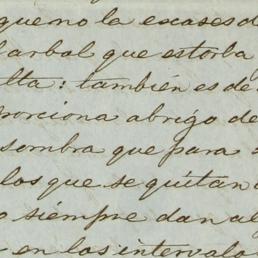 que no la escases d
arbol que estorba
lta: también es de
porciona abrigo de
sombra que para
los que se quitan
siempre dan al
en los intervalo